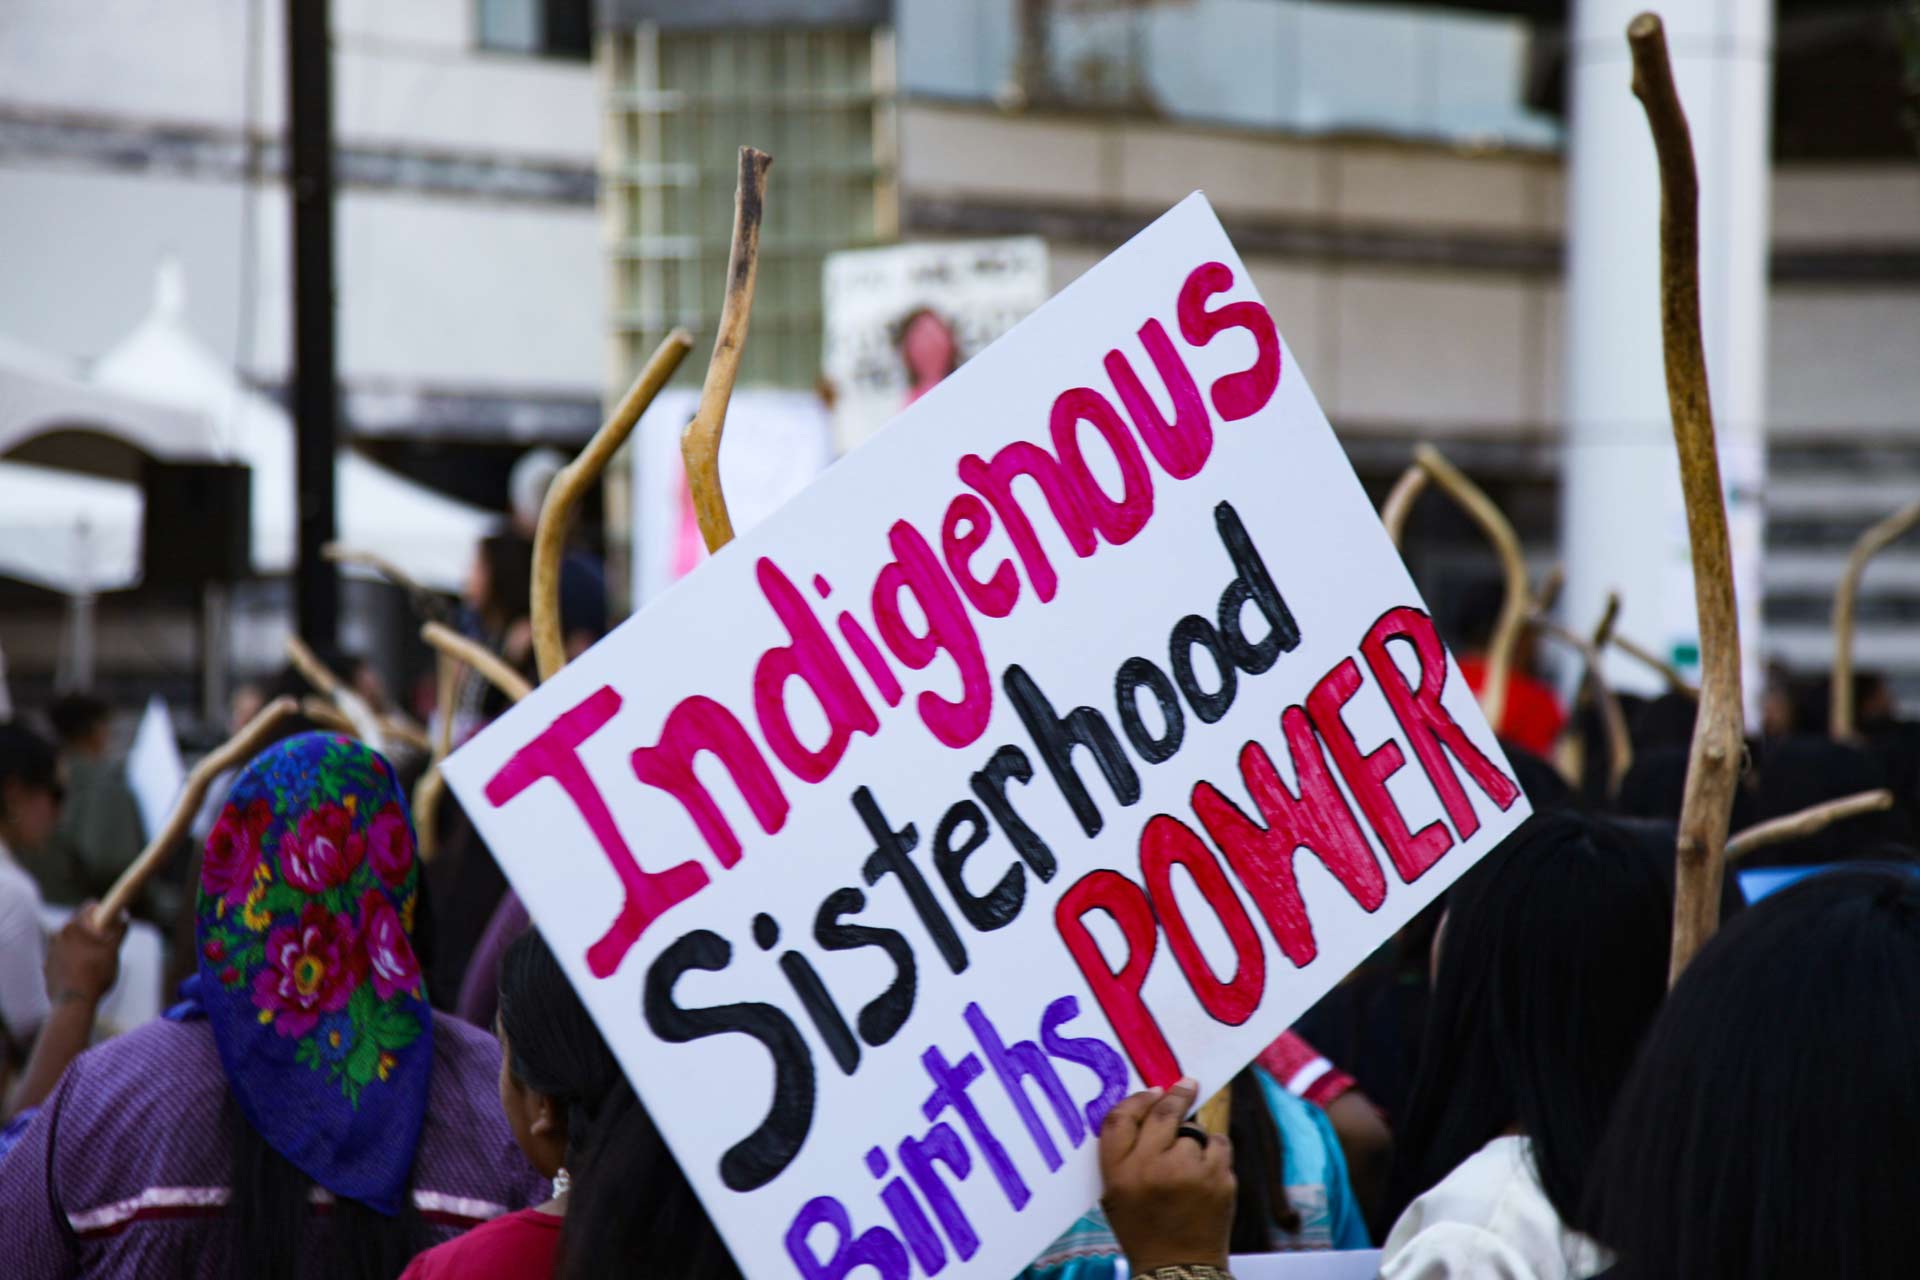 Indigenous
Sisterhood
Births POWER